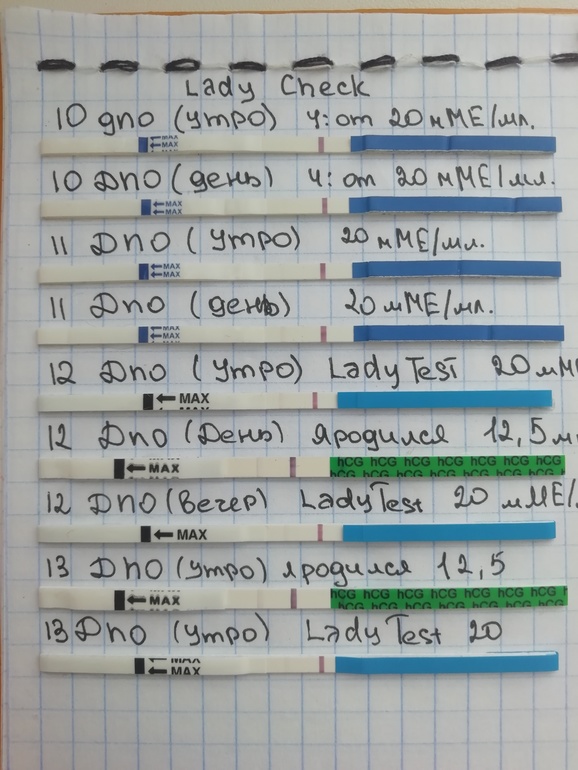 Lady Check
10 дпо (утро) ч: от 20 мМЕ/мл.
MAX
MAX
10 Dпо (день) ч: от 20 мМЕ/мл.
MAX
MAX
11 Dпо (утро) 20 мМЕ/мл.
MAX
MAX
11 Dпо (день) 20 мМЕ/мл.
MAX
MAX
12 Dпо (утро) Lady Test 20 мМ
MAX
12 Dпо (День) Яродился 12,5 м
MAX
hCG hCG hCG hCG hCG hCG hCG
hCG hCG hCG hCG hCG hCG hCG
12 Dпо (Вечер) Lady Test 20 мМЕ/
MAX
13 Dпо (утро) яродился 12,5
MAX
hCG hCG hCG hCG hCG hCG hCG
hCG hCG hCG hCG hCG hCG hCG
13 Dпо (утро) Lady Test 20
MAX
MAX